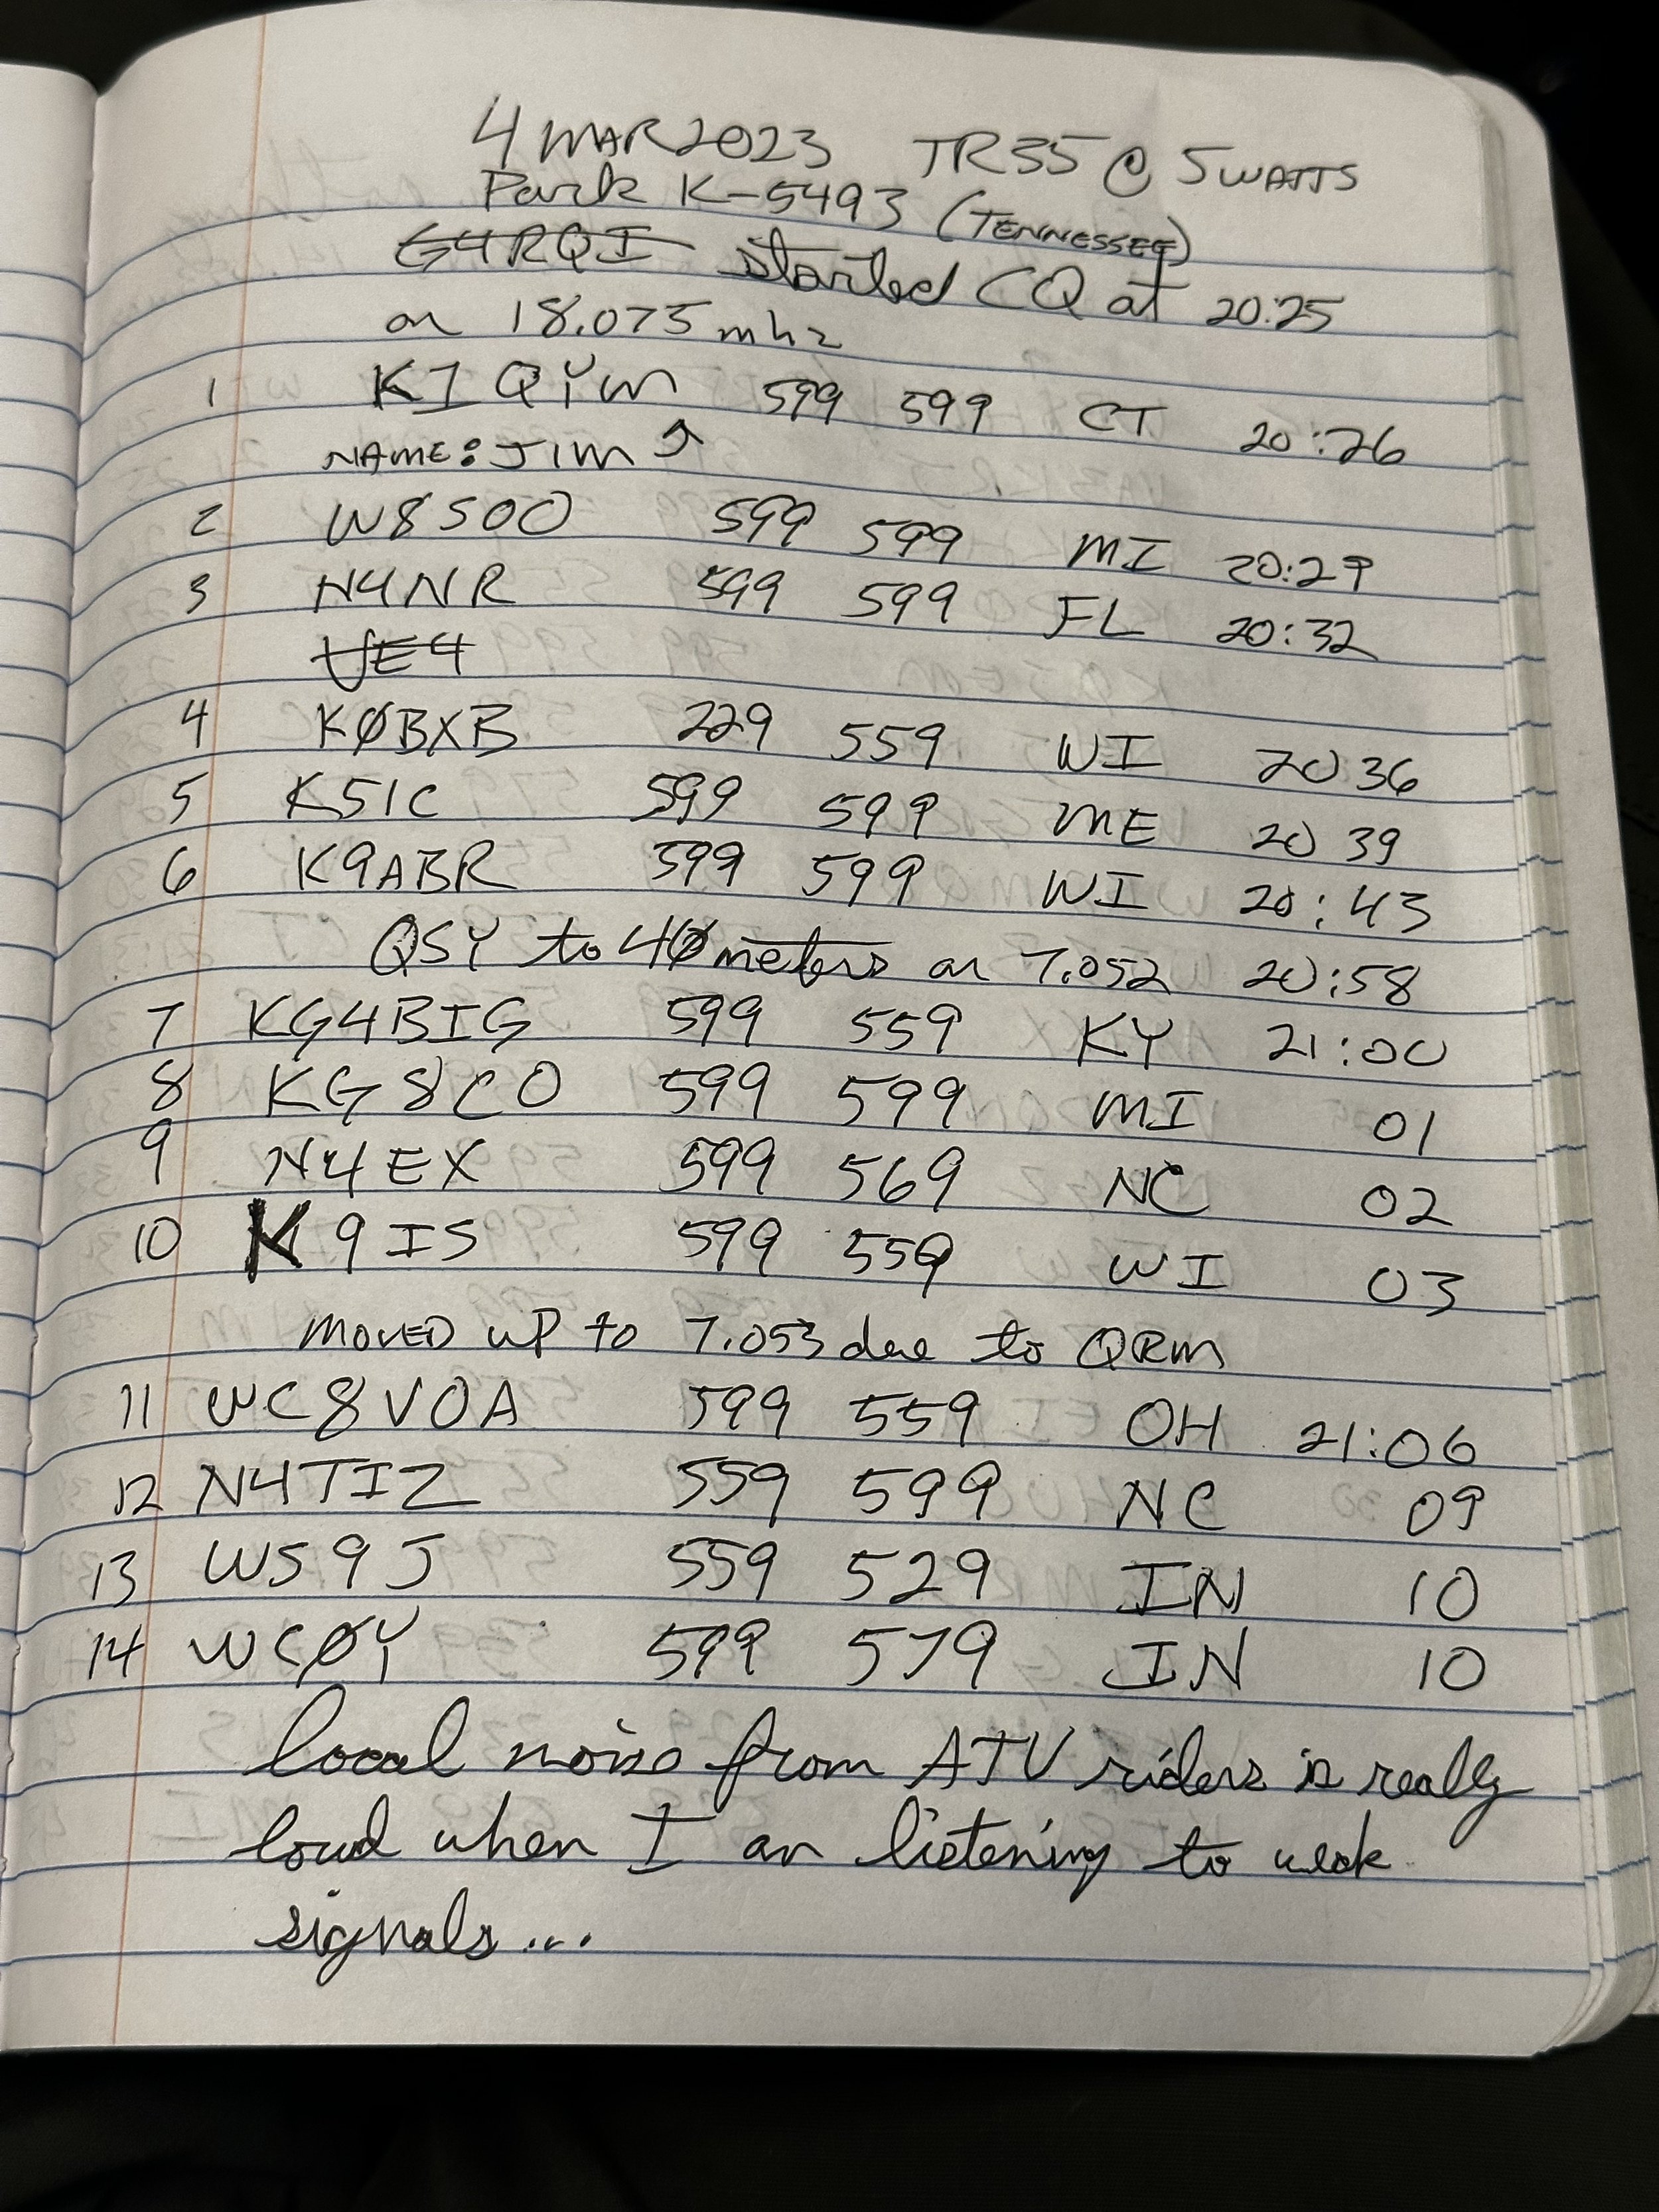 4 MAR 2023 TR35 @ 5 WATTS
Park K-5493 (TENNESSEE)
G4RQI started CQ at 20:25
on 18.075 mhz
1 K1QYM 599 599 CT 20:26
NAME: JIM
2 W8SOO 599 599 MI 20:29
3 N4NR 599 599 FL 20:32
VE4
4 KØBXB 229 559 WI 20 36
5 K5IC 599 599 ME 20 39
6 K9ABR 599 599 WI 20:43
QSY to 4Ø meters on 7.052 20:58
7 KG4BIG 599 559 KY 21:00
8 KG8CO 599 599 MI 01
9 N4EX 599 569 NC 02
10 K9IS 599 559 WI 03
MOVED UP to 7.053 due to QRM
11 WC8VOA 599 559 OH 21:06
12 N4TIZ 559 599 NC 09
13 WS9J 559 529 IN 10
14 WCØY 599 579 IN 10
local noise from ATV riders is really
loud when I am listening to weak
signals...